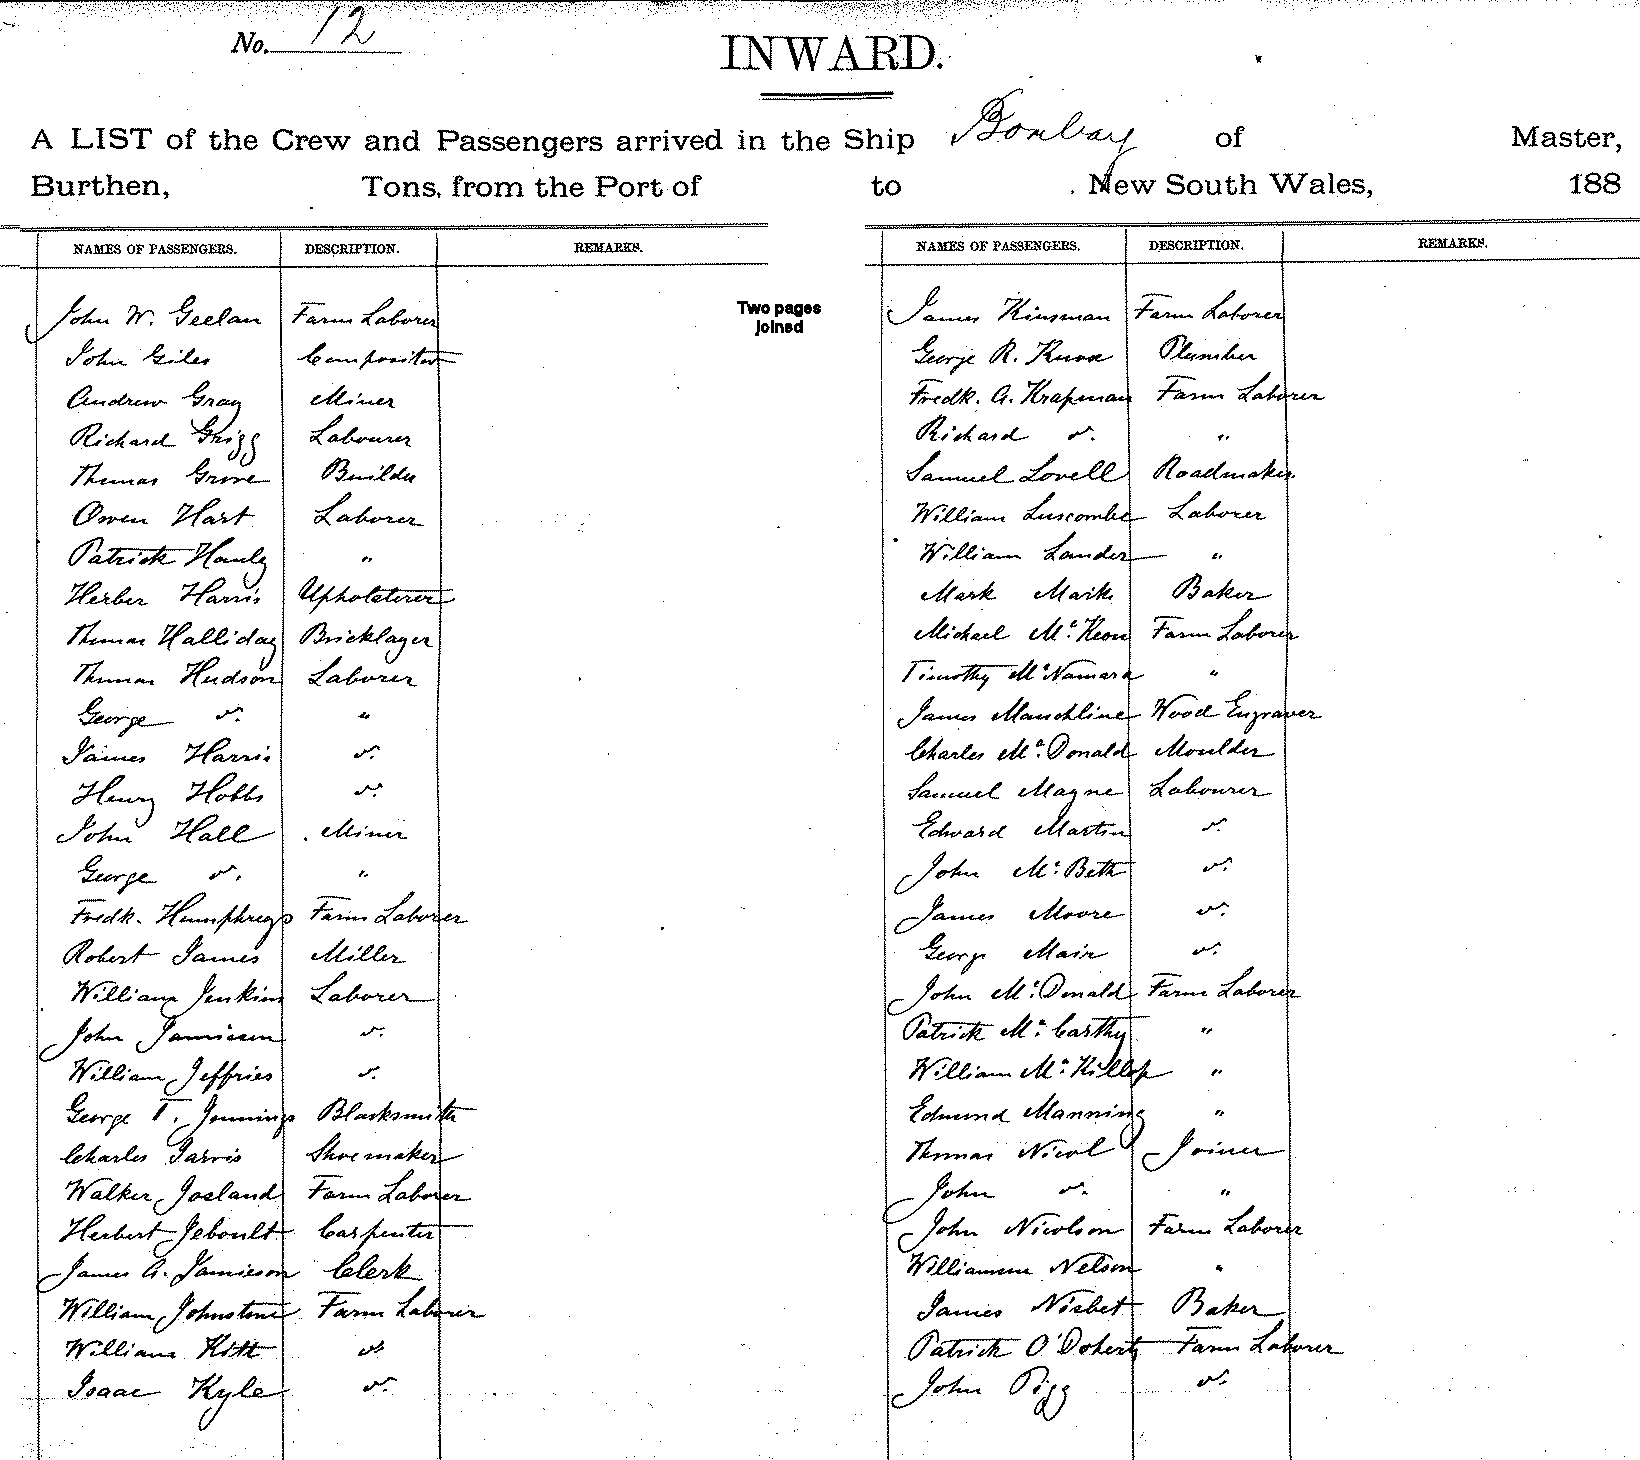 No. 12
INWARD.
A LIST of the Crew and Passengers arrived in the Ship Bombay of Master,
Burthen, Tons, from the Port of to New South Wales, 188
NAMES OF PASSENGERS. DESCRIPTION. REMARKS.
John W. Geelan Farm Laborer
John Giles Compositor
Andrew Gray Miner
Richard Grigg Labourer
Thomas Grove Builder
Owen Hart Laborer
Patrick Hanly "
Herber Harris Upholsterer
Thomas Halliday Bricklayer
Thomas Hudson Laborer
George do. "
James Harris do.
Henry Hobbs do.
John Hall Miner
George do. "
Fredk. Humphreys Farm Laborer
Robert James Miller
William Jenkins Laborer
John Jamieson do.
William Jeffries do.
George T. Jennings Blacksmith
Charles Jarvis Shoemaker
Walker Josland Farm Laborer
Herbert Jeboult Carpenter
James A. Jamieson Clerk
William Johnstone Farm Laborer
William Kitt do
Isaac Kyle do.
Two pages
joined
NAMES OF PASSENGERS. DESCRIPTION. REMARKS.
James Kinsman Farm Laborer
George R. Knox Plumber
Fredk. A. Krapman Farm Laborer
Richard do. "
Samuel Lovell Roadmaker
William Luscombe Laborer
William Lander "
Mark Maik Baker
Michael McKeon Farm Laborer
Timothy McNamara "
James Mauchline Wood Engraver
Charles McDonald Moulder
Samuel Magne Labourer
Edward Martin do.
John McBeth do.
James Moore do.
George Mair do.
John McDonald Farm Laborer
Patrick McCarthy "
William McKillop "
Edmund Manning "
Thomas Nicol Joiner
John do. "
John Nicolson Farm Laborer
Nelson "
James Nisbet Baker
Patrick O'Doherty Farm Laborer
John Pigg do.